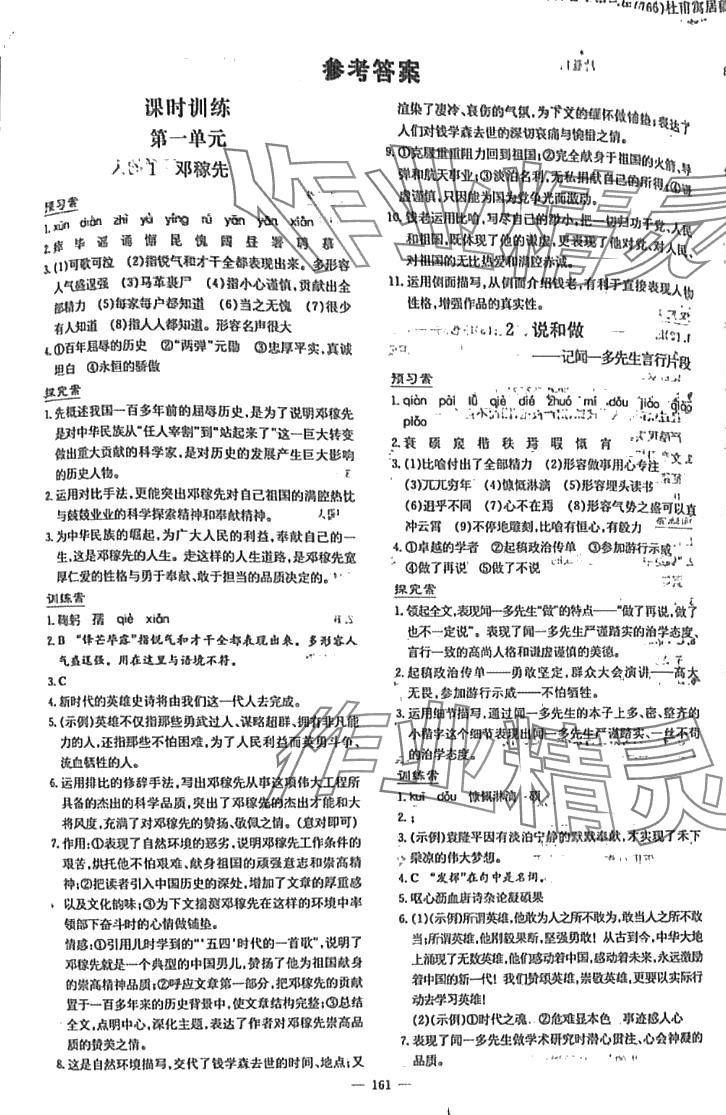 参考答案
课时训练
第一单元
1 邓稼先
预习案
1. xūn diàn zhì yù yíng nú yān yǎn xiǎn
3. (1)可歌可泣 (2)指锐气和才干全都表现出来。多形容
人气盛逞强 (3)马革裹尸 (4)指小心谨慎,贡献出全
部精力 (5)每家每户都知道 (6)当之无愧 (7)很少
有人知道 (8)指人人都知道。形容名声很大
4. ①百年屈辱的历史 ②“两弹”元勋 ③忠厚平实,真诚
坦白 ④永恒的骄傲
探究案
1. 先概述我国一百多年前的屈辱历史,是为了说明邓稼先
是对中华民族从“任人宰割”到“站起来了”这一巨大转变
做出重大贡献的科学家,是对历史的发展产生巨大影响
的历史人物。
2. 运用对比手法,更能突出邓稼先对自己祖国的满腔热忱
与兢兢业业的科学探索精神和奉献精神。
3. 为中华民族的崛起,为广大人民的利益,奉献自己的一
生,这是邓稼先的人生。走这样的人生道路,是邓稼先宽
厚仁爱的性格与勇于奉献、敢于担当的品质决定的。
训练案
1. 鞠躬 孺 qiè xiǎn
2. B “锋芒毕露”指锐气和才干全都表现出来。多形容人
气盛逞强。用在这里与语境不符。
3. C
4. 新时代的英雄史诗将由我们这一代人去完成。
5. (示例)英雄不仅指那些勇武过人、谋略超群、拥有非凡能
力的人,还指那些不怕困难、为了人民利益而英勇斗争、
流血牺牲的人。
6. 运用排比的修辞手法,写出邓稼先从事这项伟大工程所
具备的杰出的科学品质,突出了邓稼先的杰出才能和大
将风度,充满了对邓稼先的赞扬、敬佩之情。(意对即可)
7. 作用:①表现了自然环境的恶劣,说明邓稼先工作条件的
艰苦,烘托他不怕艰难、献身祖国的顽强意志和崇高精
神;②把读者引入中国历史的深处,增加了文章的厚重感
以及文化韵味;③为下文揣测邓稼先在这样的环境中率
领部下奋斗时的心情做铺垫。
情感:①引用儿时学到的“‘五四’时代的一首歌”,说明了
邓稼先就是一个典型的中国男儿,赞扬了他为祖国献身
的崇高精神品质;②呼应文章第一部分,把邓稼先的贡献
置于一百多年来的历史背景中,使文章结构完整;③总结
全文,点明中心,深化主题,表达了作者对邓稼先崇高品
质的赞美之情。
8. 这是自然环境描写,交代了钱学森去世的时间、地点;又
渲染了凄冷、哀伤的气氛,为下文的缅怀做铺垫;表达了
人们对钱学森去世的深切哀痛与惋惜之情。
9. ①克服重重阻力回到祖国;②完全献身于祖国的火箭、导
弹和航天事业;③淡泊名利,无私捐献自己的所得;④谦
虚谨慎,只因能为国为党争光而激动。
10. 钱老运用比喻,写尽自己的渺小,把一切归功于党、人民
和祖国,既体现了他的谦虚,更表现了他对党、对人民、
对祖国的无比热爱和满腔赤诚。
11. 运用侧面描写,全面介绍钱老,有利于直接表现人物
性格,增强作品的真实性。
2 说和做
——记闻一多先生言行片段
预习案
3. (1)比喻付出了全部精力 (2)形容做事用心专注
(3)兀兀穷年 (4)慷慨淋漓 (5)形容埋头读书
(6)迥乎不同 (7)心不在焉 (8)形容气势之盛可以直
冲云霄 (9)不停地雕刻,比喻有恒心,有毅力
4. ①卓越的学者 ②起稿政治传单 ③参加游行示威
④做了再说 ⑤做了不说
探究案
1. 领起全文,表现闻一多先生“做”的特点——“做了再说,做了
也不一定说”。表现了闻一多先生严谨踏实的治学态度、
言行一致的高尚人格和谦虚谨慎的美德。
2. 起稿政治传单——勇敢坚定,群众大会演讲——高大
无畏,参加游行示威——不怕牺牲。
3. 运用细节描写,通过闻一多先生的本子上多、密、整齐的
小楷字这个细节表现出闻一多先生严谨踏实、一丝不苟
的治学态度。
训练案
1. kuī dōu 慷慨淋漓 硕
2. ;
3. (示例)袁隆平因有淡泊宁静的默默奉献,才实现了禾下
乘凉的伟大梦想。
4. C “发挥”在句中是名词。
5. 呕心沥血唐诗杂论凝硕果
6. (1)(示例)所谓英雄,他敢为人之所不敢为,敢当人之所
不敢当。所谓英雄,他刚毅果断,坚强勇敢!从古到今,中华大地
上涌现了无数英雄,他们感动着现在,激励着未来,永远激励
着中国的新一代!我们赞颂英雄,崇敬英雄,更要以实际行
动去学习英雄!
(2)(示例)①时代之魂 ②危难显身手 事迹感人心
7. 表现了闻一多先生做学术研究时潜心贯注、心会神凝的
品质。
— 161 —